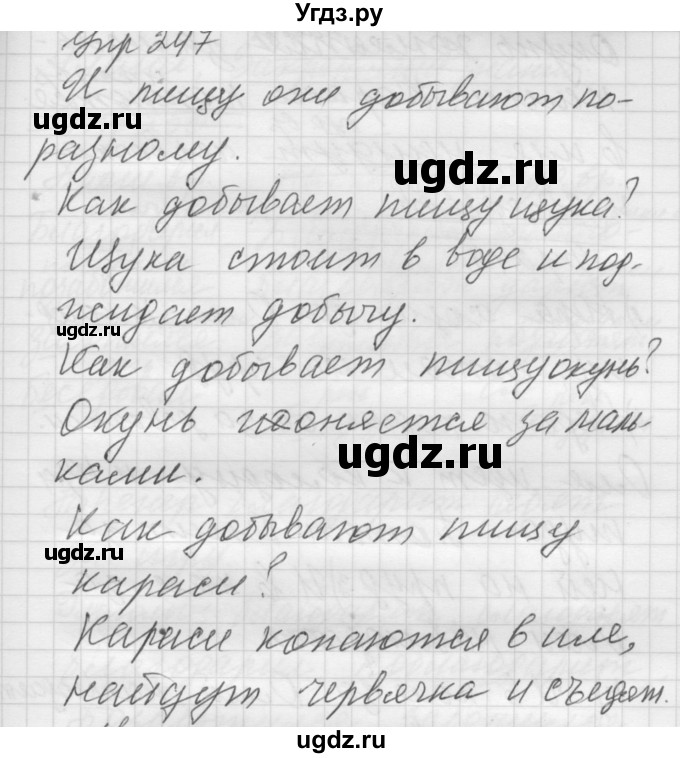 Угдз.ру
Упр 247
И пищу они добывают по-
ugdz.ru
разному.
ugdz.ru
Как добывает пищу щука?
Щука стоит в воде и под-
ugdz.ru
жидает добычу.
Как добывает пищу окунь?
Окунь гоняется за маль-
ugdz.ru
ками.
Как добывают пищу
ugdz.ru
караси?
Караси копаются в иле,
найдут червячка и съедят.
ugdz.ru